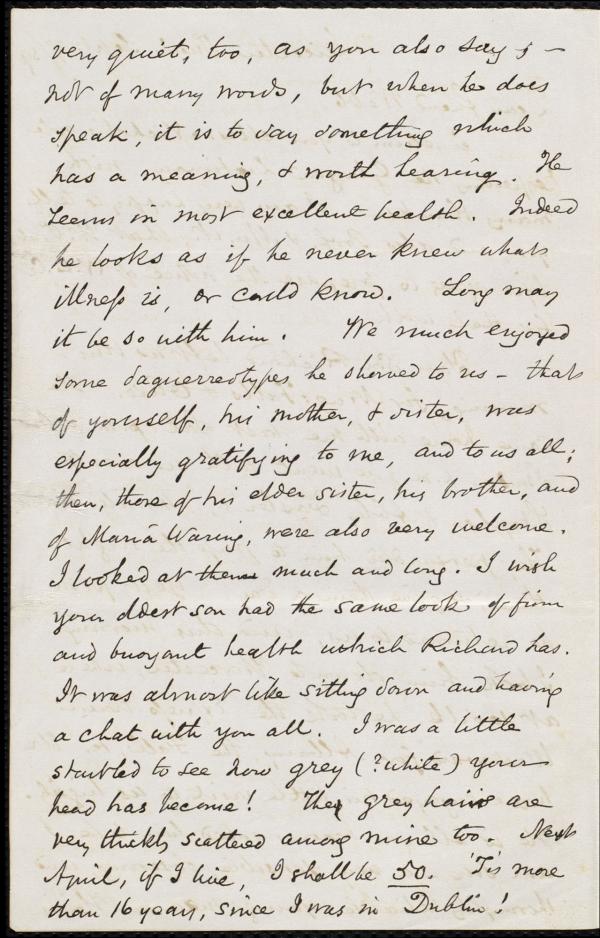 very quiet, too, as you also say; –
not of many words, but when he does
speak, it is to say something which
has a meaning, & worth hearing. He
seems in most excellent health. Indeed
he looks as if he never knew what
illness is, or could know. Long may
it be so with him. We much enjoyed
some daguerreotypes he showed to us – that
of yourself, his mother, & sister, was
especially gratifying to me, and to us all;
then, those of his elder sister, his brother, and
of Maria Waring, were also very welcome.
I looked at them much and long. I wish
your eldest son had the same look of firm
and buoyant health which Richard has.
It was almost like sitting down and having
a chat with you all. I was a little
startled to see how grey (? white) your
head has become! The grey hairs are
very thickly scattered among mine too. Next
April, if I live, I shall be 50. 'Tis more
than 16 years, since I was in Dublin!